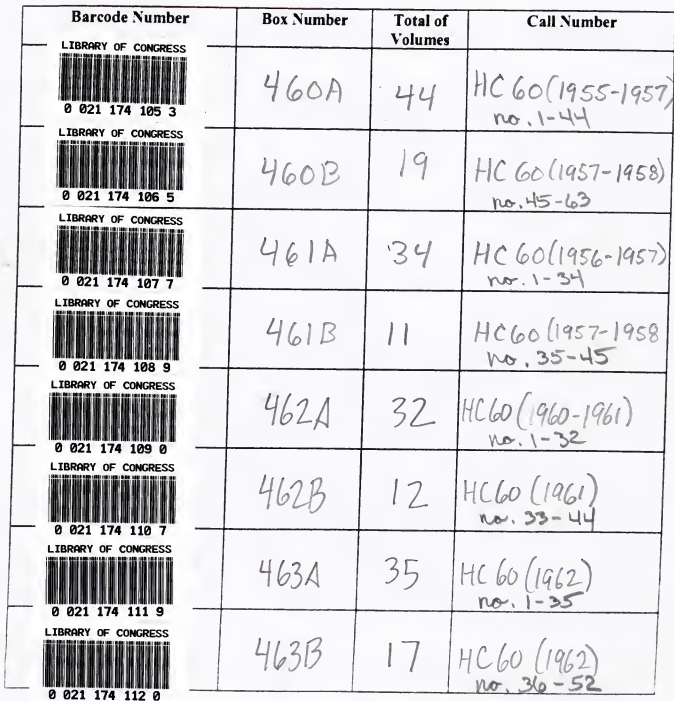 Barcode Number Box Number Total of Volumes Call Number
LIBRARY OF CONGRESS
0 021 174 105 3
460A 44 HC 60(1955-1957)
no. 1-44
LIBRARY OF CONGRESS
0 021 174 106 5
460B 19 HC 60(1957-1958)
no. 45-63
LIBRARY OF CONGRESS
0 021 174 107 7
461A 34 HC 60(1956-1957)
no. 1-34
LIBRARY OF CONGRESS
0 021 174 108 9
461B 11 HC60(1957-1958
no. 35-45
LIBRARY OF CONGRESS
0 021 174 109 0
462A 32 HC60(1960-1961)
no. 1-32
LIBRARY OF CONGRESS
0 021 174 110 7
462B 12 HC60 (1961)
no. 33-44
LIBRARY OF CONGRESS
0 021 174 111 9
463A 35 HC 60 (1962)
no. 1-35
LIBRARY OF CONGRESS
0 021 174 112 0
463B 17 HC 60 (1962)
no. 36-52